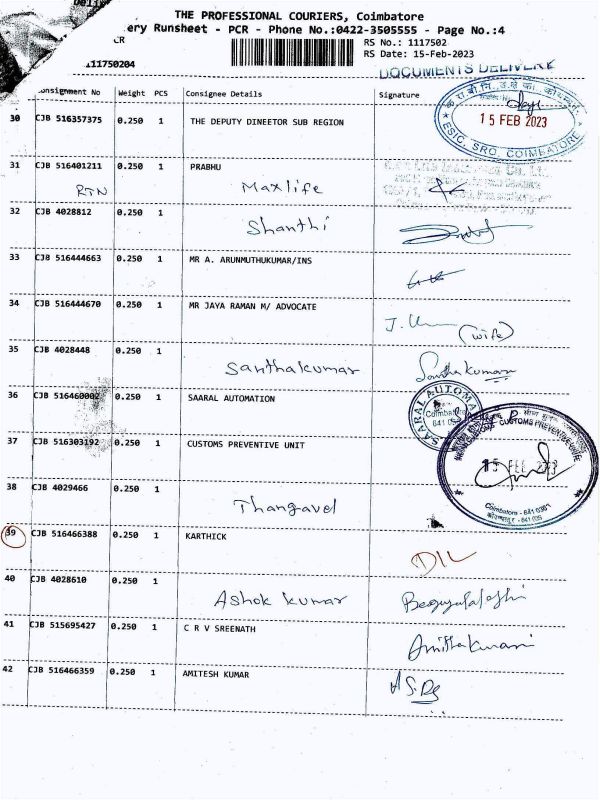 THE PROFESSIONAL COURIERS, Coimbatore
ery Runsheet - PCR - Phone No.:0422-3505555 - Page No.:4
CR
RS No.: 1117502
.11750204
RS Date: 15-Feb-2023
DOCUMENTS DELIVERY
onsignment No Weight PCS Consignee Details Signature
15 FEB 2023
ESIC, SRO, COIMBATORE
30 CJB 516357375 0.250 1 THE DEPUTY DINEETOR SUB REGION
31 CJB 516401211 0.250 1 PRABHU
RTN Maxlife
32 CJB 4028812 0.250 1
Shanthi
33 CJB 516444663 0.250 1 MR A. ARUNMUTHUKUMAR/INS
34 CJB 516444670 0.250 1 MR JAYA RAMAN M/ ADVOCATE
(wife)
35 CJB 4028448 0.250 1
Santhakumar Santhakumar
36 CJB 516460002 0.250 1 SAARAL AUTOMATION
SAARAL AUTOMA
Coimbatore
641 0
37 CJB 516303192 0.250 1 CUSTOMS PREVENTIVE UNIT
CUSTOMS PREVENTIVE UNIT
15 FEB 2023
Coimbatore - 641
38 CJB 4029466 0.250 1
Thangavel
39 CJB 516466388 0.250 1 KARTHICK
D/L
40 CJB 4028610 0.250 1
Ashok kumar
41 CJB 515695427 0.250 1 C R V SREENATH
42 CJB 516466359 0.250 1 AMITESH KUMAR